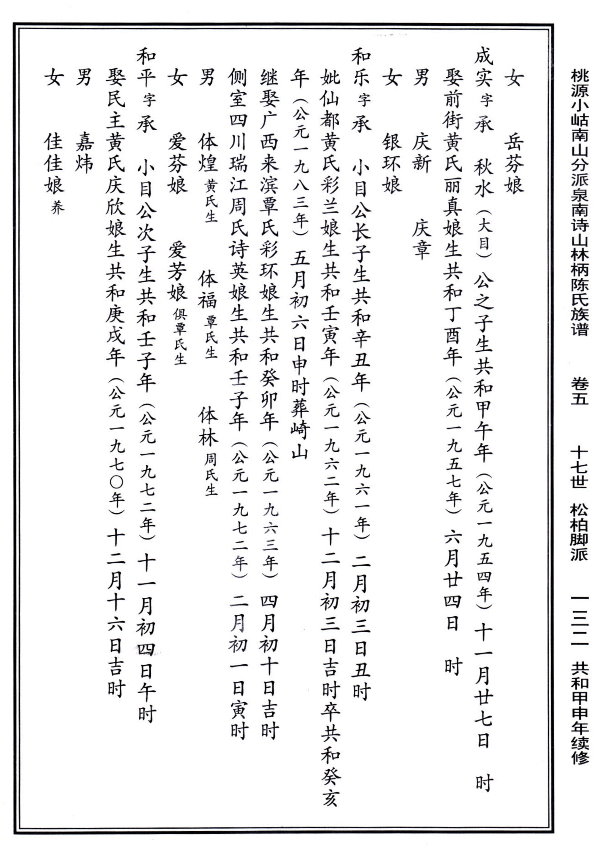 桃源小岵南山分派泉南诗山林柄陈氏族谱 卷五 十七世 松柏脚派 一三二 共和甲申年续修
女 岳芬娘
成实字承 秋水（大目）公之子生共和甲午年（公元一九五四年）十一月廿七日 时
娶前街黄氏丽真娘生共和丁酉年（公元一九五七年）六月廿四日 时
男 庆新 庆章
女 银环娘
和乐字承 小目公长子生共和辛丑年（公元一九六一年）二月初三日丑时
妣仙都黄氏彩兰娘生共和壬寅年（公元一九六二年）十二月初三日吉时卒共和癸亥
年（公元一九八三年）五月初六日申时葬崎山
继娶广西来滨覃氏彩环娘生共和癸卯年（公元一九六三年）四月初十日吉时
侧室四川瑞江周氏诗英娘生共和壬子年（公元一九七二年）二月初一日寅时
男 体煌黄氏生 体福覃氏生 体林周氏生
女 爱芬娘 爱芳娘俱覃氏生
和平字承 小目公次子生共和壬子年（公元一九七二年）十一月初四日午时
娶民主黄氏庆欣娘生共和庚戌年（公元一九七〇年）十二月十六日吉时
男 嘉炜
女 佳佳娘养